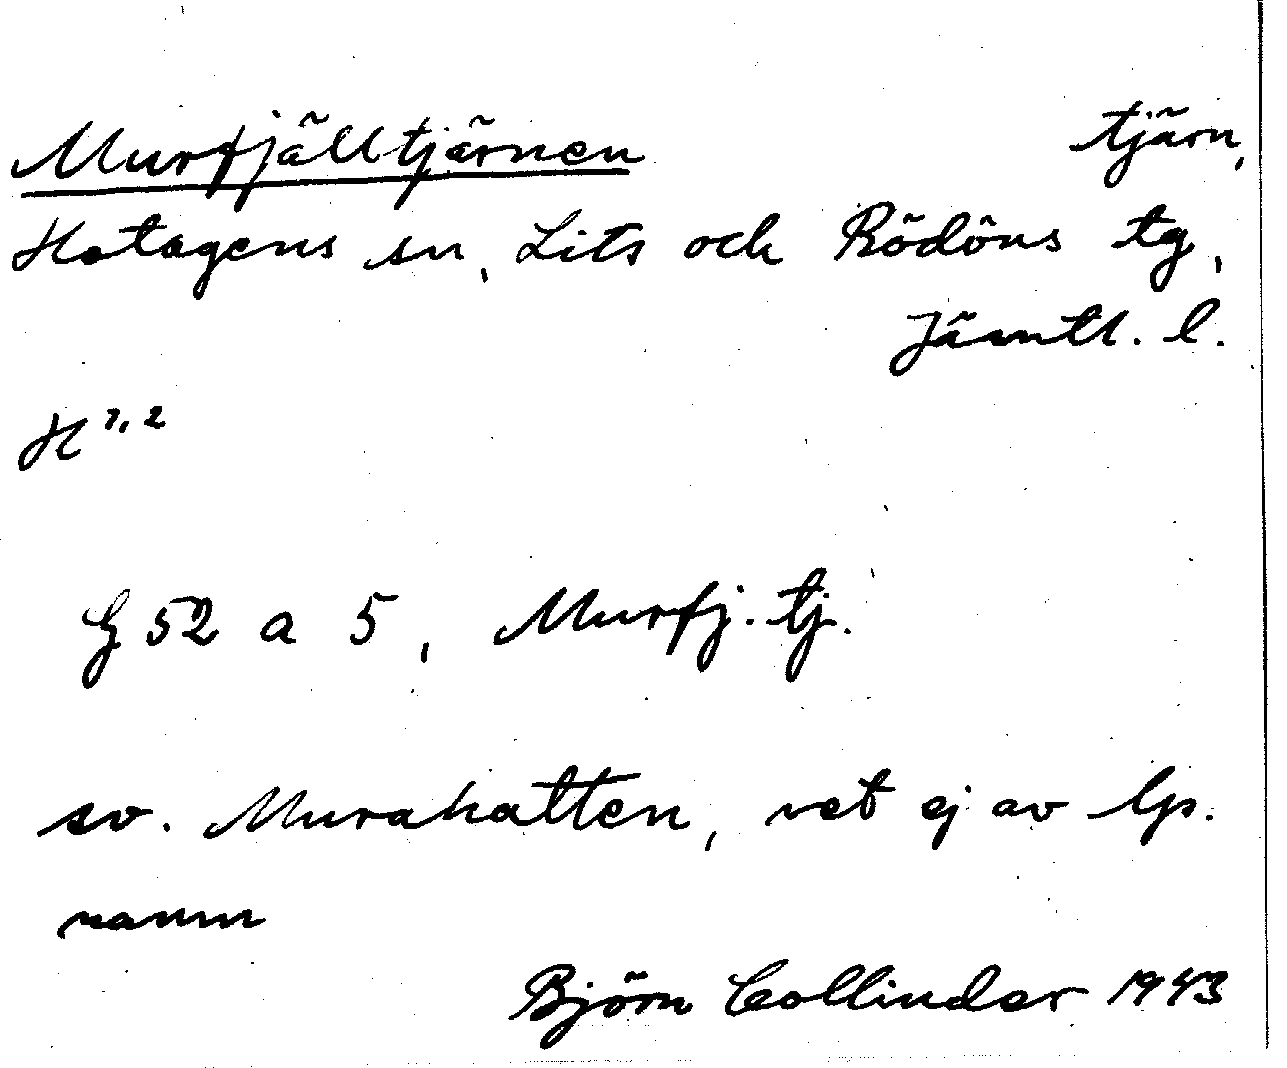 Murfjälltjärnen tjärn,
Hotagens sn, Lits och Rödöns tg,
Jämtl. l.
H 1, 2
G 52 a 5, Murfj. tj.
sv. Murahatten, vet ej av lp.
namn
Björn Collinder 1943